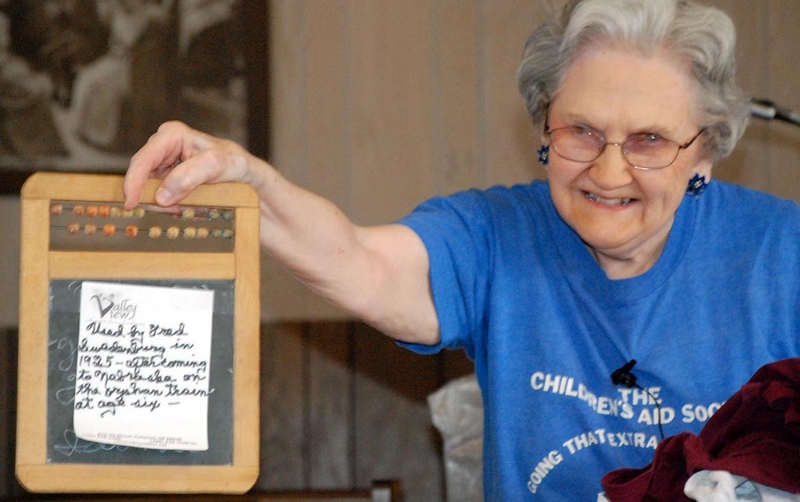 Valley
View
Used by Fred
Swedenburg in
1925 - after coming
to Nebraska on
the orphan train
at age six -
THE
CHILDREN'S AID SOC
GOING THAT EXTRA